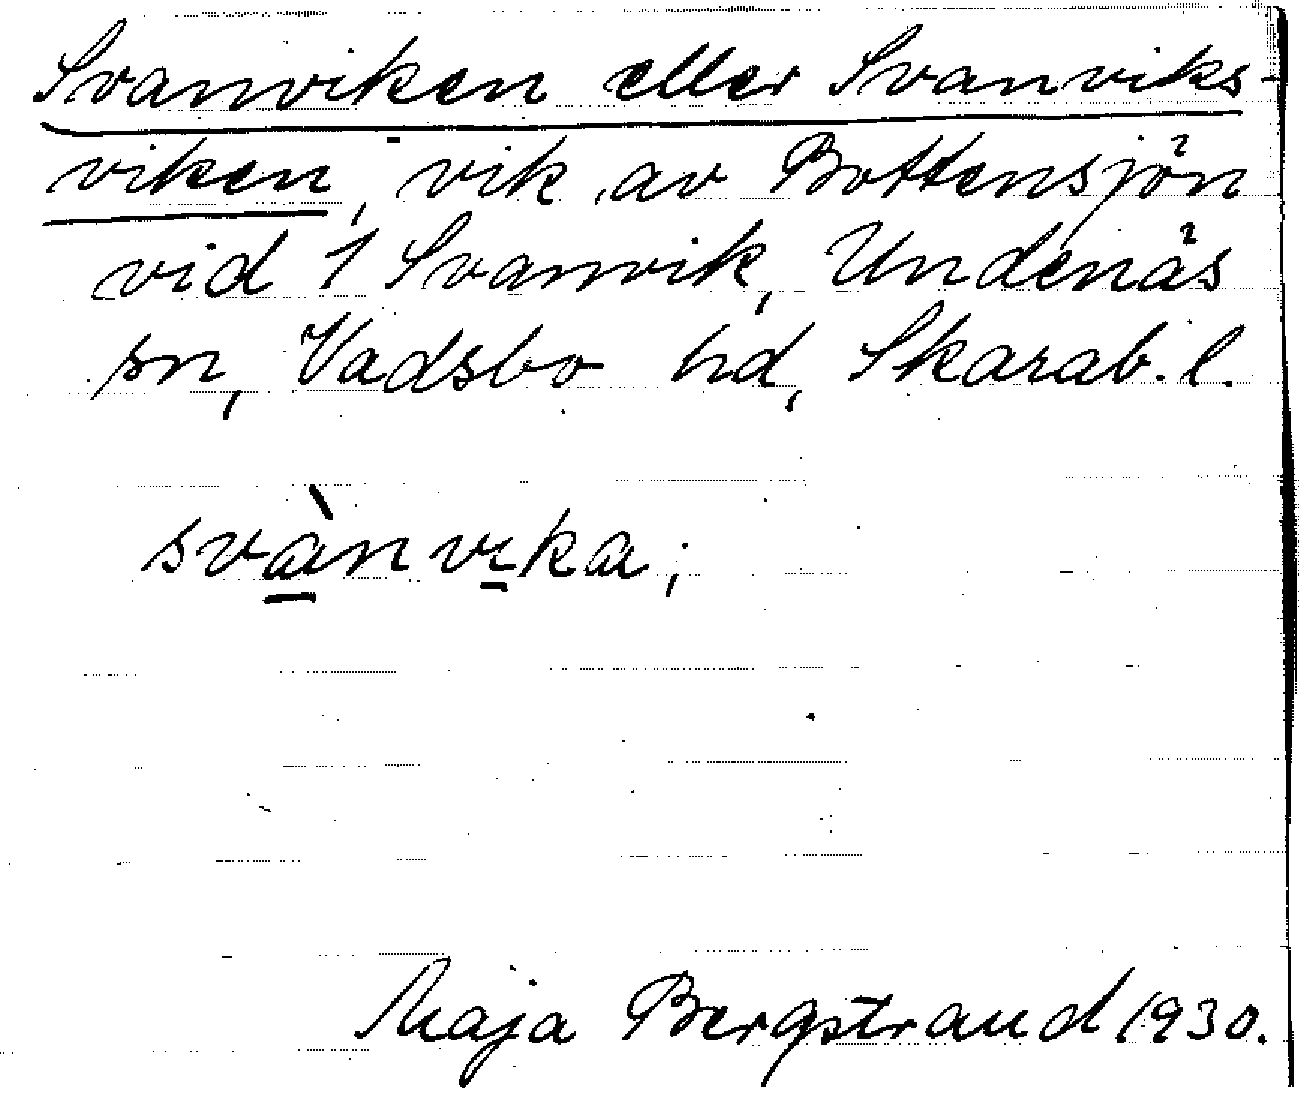 Svanviken eller Svanviks-
viken, vik av Bottensjön
vid 1 Svanvik, Undenäs
sn, Vadsbo hd, Skarab. l.
svànvika;
Maja Bergstrand 1930.